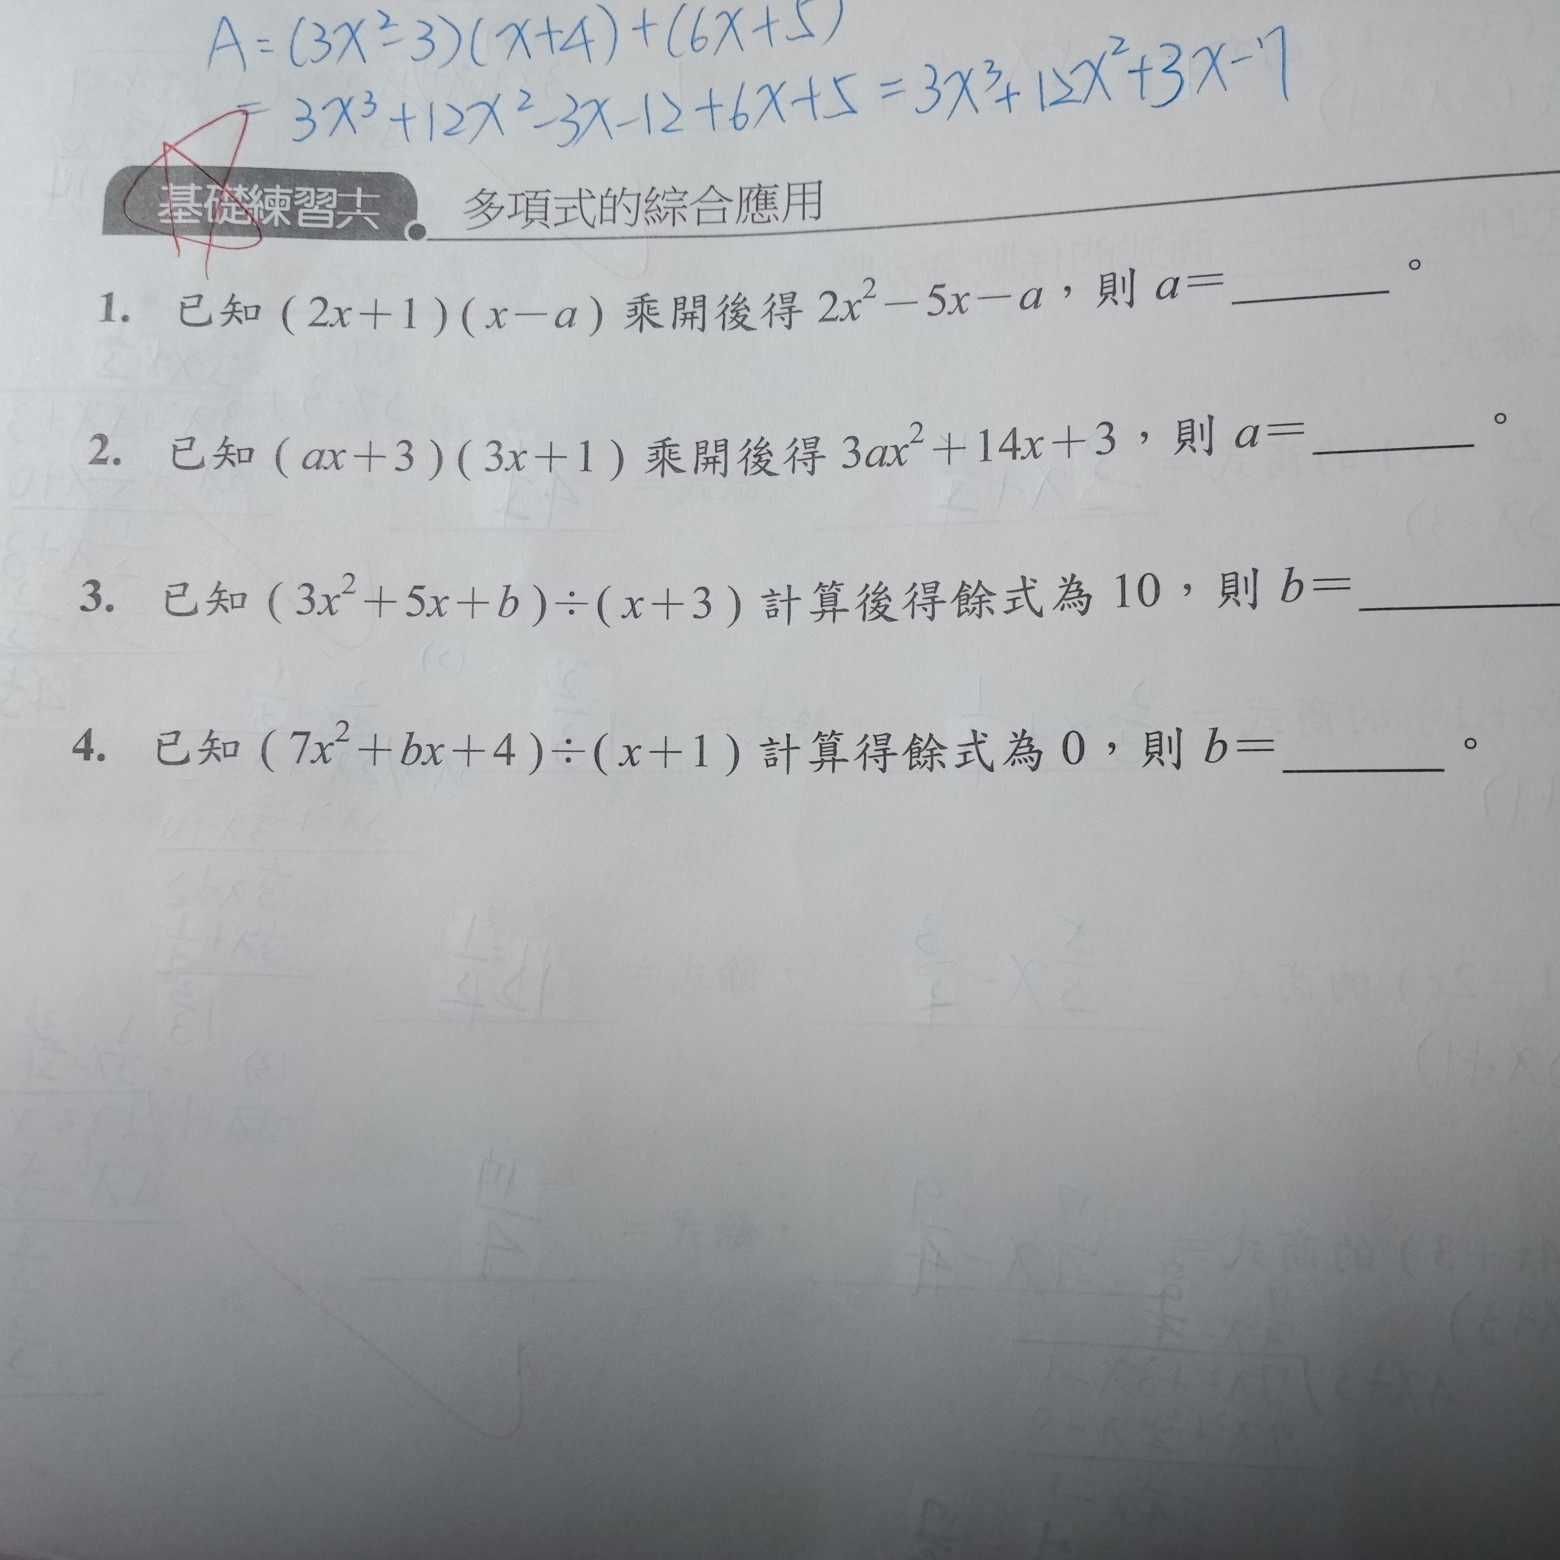 A=(3x²-3)(x+4)+(6x+5)
= 3x³+12x²-3x-12+6x+5 = 3x³+12x²+3x-7
基礎練習六 多項式的綜合應用
1. 已知(2x+1)(x-a)乘開後得2x²-5x-a,則a=______。
2. 已知(ax+3)(3x+1)乘開後得3ax²+14x+3,則a=______。
3. 已知(3x²+5x+b)÷(x+3)計算後得餘式為10,則b=______
4. 已知(7x²+bx+4)÷(x+1)計算得餘式為0,則b=______。